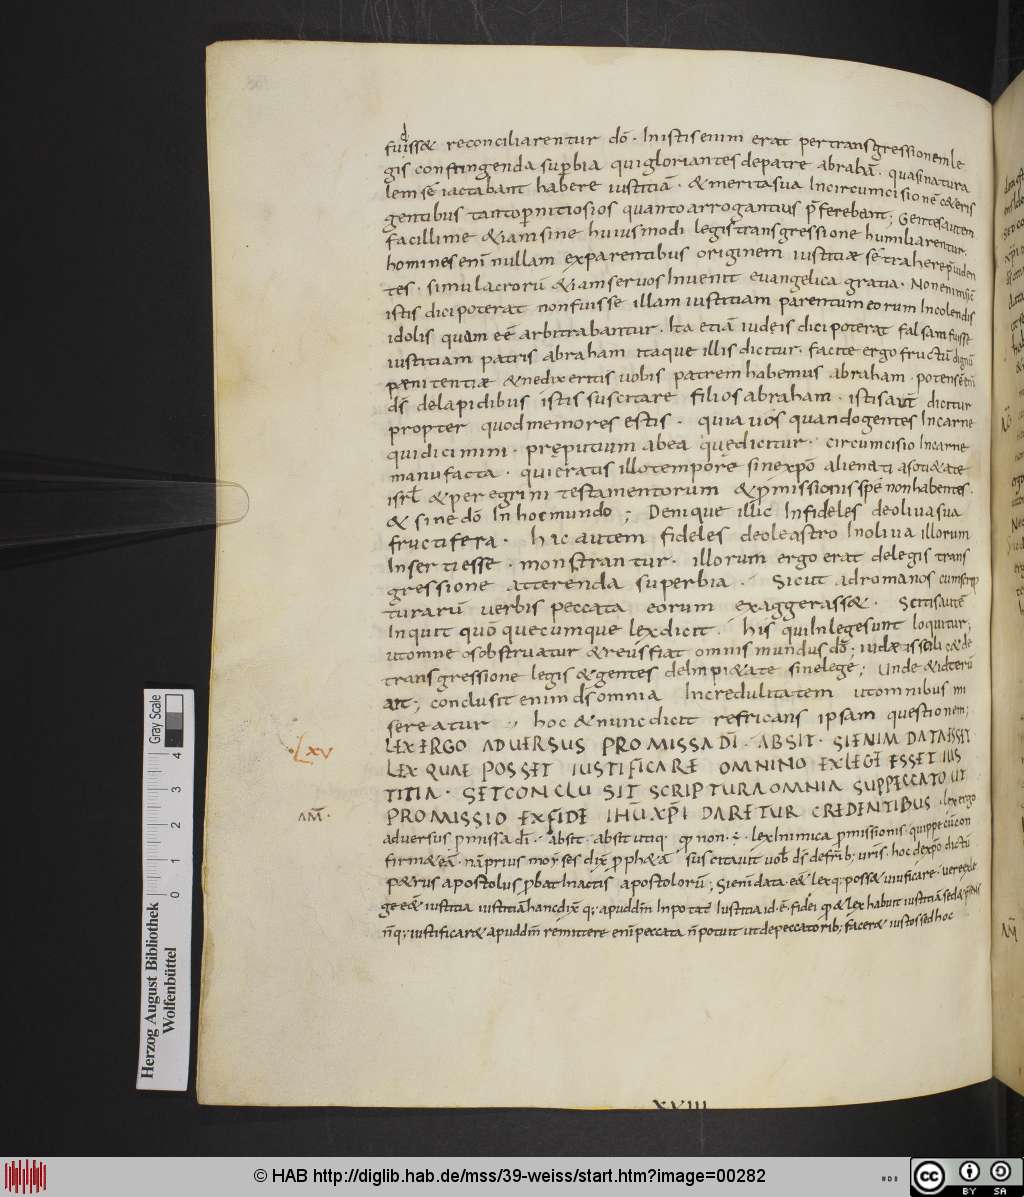 fuiss& reconciliarentur dō. Inistisenim erat pertransgressionemle
gis confringenda supbia quigloriantes depatre abrahā. quasinatura
lem sē iactabant habere iustitiā. & meritasua Incircumcisionē cęteris
gentibus tantopnitiosios quantoarrogantius pferebant; Gentes autem
facillime &iamsine huiusmodi legis transgressione humiliarentur.
homines enī nullam exparentibus originem iustitiæ sē trahere puiden
tes. simulacrorū &iamseruos Inuenit euangelica gratia. Non enim sic
istis dicipoterat nonfuisse illam iustitiam parentum eorum Incolendis
idolis quam eē arbitrabantur. Ita etiā iudeis dici poterat falsam fuisse
iustitiam patris abraham itaque illis dicitur. facite ergo fructū dignū
pænitentiæ &nedixeritis uobis patrem habemus abraham. potens ē enī
ds̄ delapidibus istis suscitare filios abraham. istisaūt dicitur
propter quod memores estis. quia uos quandogentes Incarne
quidicimini. prępitium abea quędicitur. circumcisio Incarne
manufacta. quieratis illotempore sinexpō alienati asoti&ate
isrł &peregrini testamentorum &pmissionis spē non habentes.
& sine dō In hocmundo; Denique illic Infideles deoliuasua
fructifera. hic autem fideles deoleastro Inoliua illorum
Inserti esse. monstrantur. illorum ergo erat delegis trans
gressione atterenda superbia. Sicut adromanos cumscrip
turarū uerbis peccata eorum exaggerass&. Scitisautē
Inquit quō quecumque lexdicit. his quiInlegesunt loquitur;
utomne os obstruatur &reusfiat omnis mundus dō; iudæi scili c&de
transgressione legis &gentes deImpi&ate sinelege; Unde &iterū
ait; conclusit enim ds̄ omnia Incredulitatem utomnibus mi
sereatur; hoc &nunc dicit refricans ipsam questionem;
LXV
LEX ERGO ADUERSUS PROMISSA DĪ. ABSIT. SIENIM DATA ESSET
LEX QUAE POSSET IUSTIFICARE OMNINO EXLEGE ESSET IUS
TITIA. SETCONCLUSIT SCRIPTURA OMNIA SUPPECCATO UT
AM̄.
PROMISSIO EXFIDE IHŪ XPĪ DARETUR CREDENTIBUS. lex ergo
aduersus pmissa dī. absit. absit utiq; qp non ÷ lex Inimica pmissionis quippe cū con
firm& eā. nā prius moyses dix̄ pph&ā suscitauit uob ds̄ defrīb; urīs. hoc dexpō dictū
p&rus apostolus pbat Inactis apostolorū; Sienī data e& lex q; poss& uiuificare. uere exle
ge e& iustitia iustitiā hancdix̄ q; apuddm̄
n̄ q; iustificar& apuddm̄ remittere enī peccata n̄ potuit ut depeccatorib; facer& iustos sed hoc
XVIII
Herzog August Bibliothek
Wolfenbüttel
0 1 2 3 4
Gray Scale
© HAB http://diglib.hab.de/mss/39-weiss/start.htm?image=00282
cc BY SA